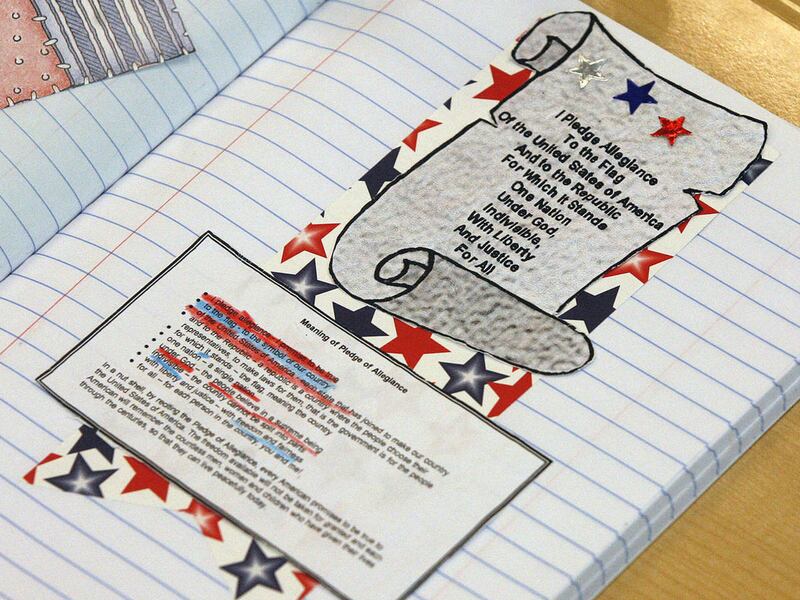 I Pledge Allegiance
To the Flag
Of the United States of America
And to the Republic
For Which It Stands
One Nation
Under God,
Indivisible,
With Liberty
And Justice
For All
Meaning of Pledge of Allegiance
I pledge allegiance - I promise to be true
to the flag - to the symbol of our country
of the United States of America - each state that has joined to make our country
and to the Republic - a republic is a country where the people choose their
representatives, to make laws for them, that is the government is for the people
for which it stands - the flag, meaning the country
one nation - a single nation
under God - the people believe in a supreme being
indivisible - the country cannot be split into parts
with liberty and justice - with freedom and fairness
for all - for each person in the country, you and me!
In a nut shell, by reciting the Pledge of Allegiance, every American promises to be true to
the United States of America. The freedom available will not be taken for granted and each
American will remember the countless men, women and children who have given their lives
through the centuries, so that they can live peacefully today.